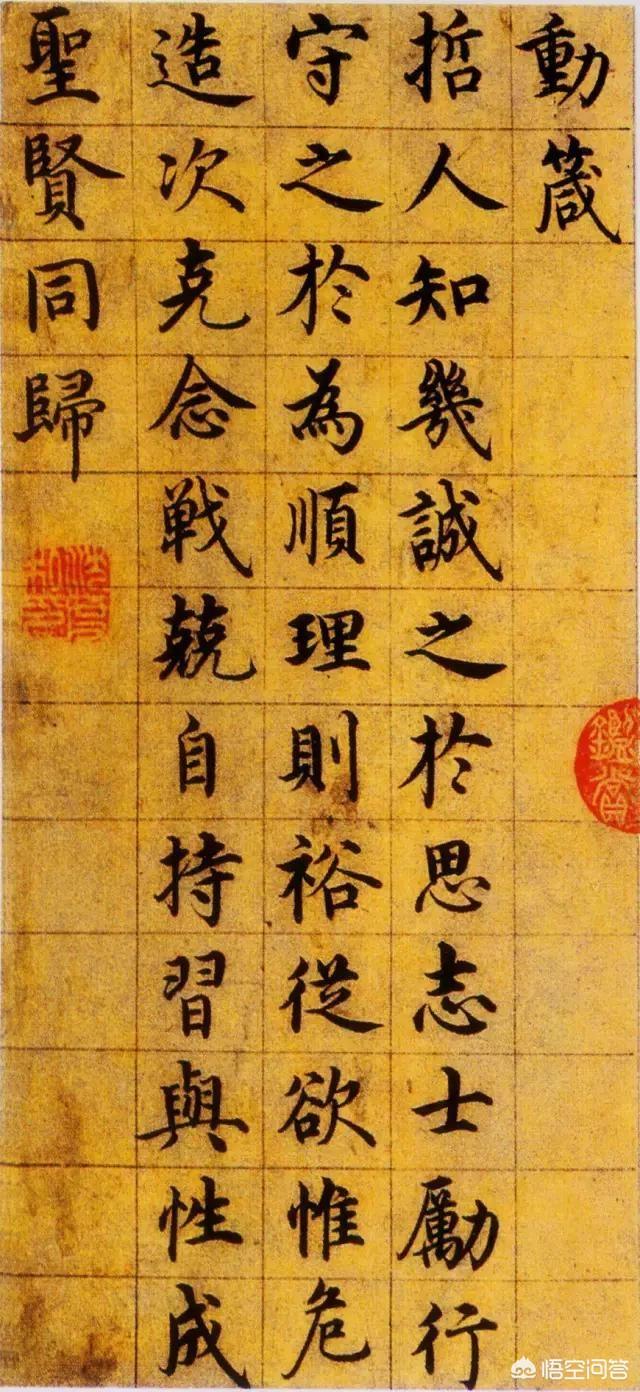 動箴
哲人知幾誠之於思志士勵行
守之於為順理則裕從欲惟危
造次克念戦兢自持習與性成
聖賢同歸
悟空问答